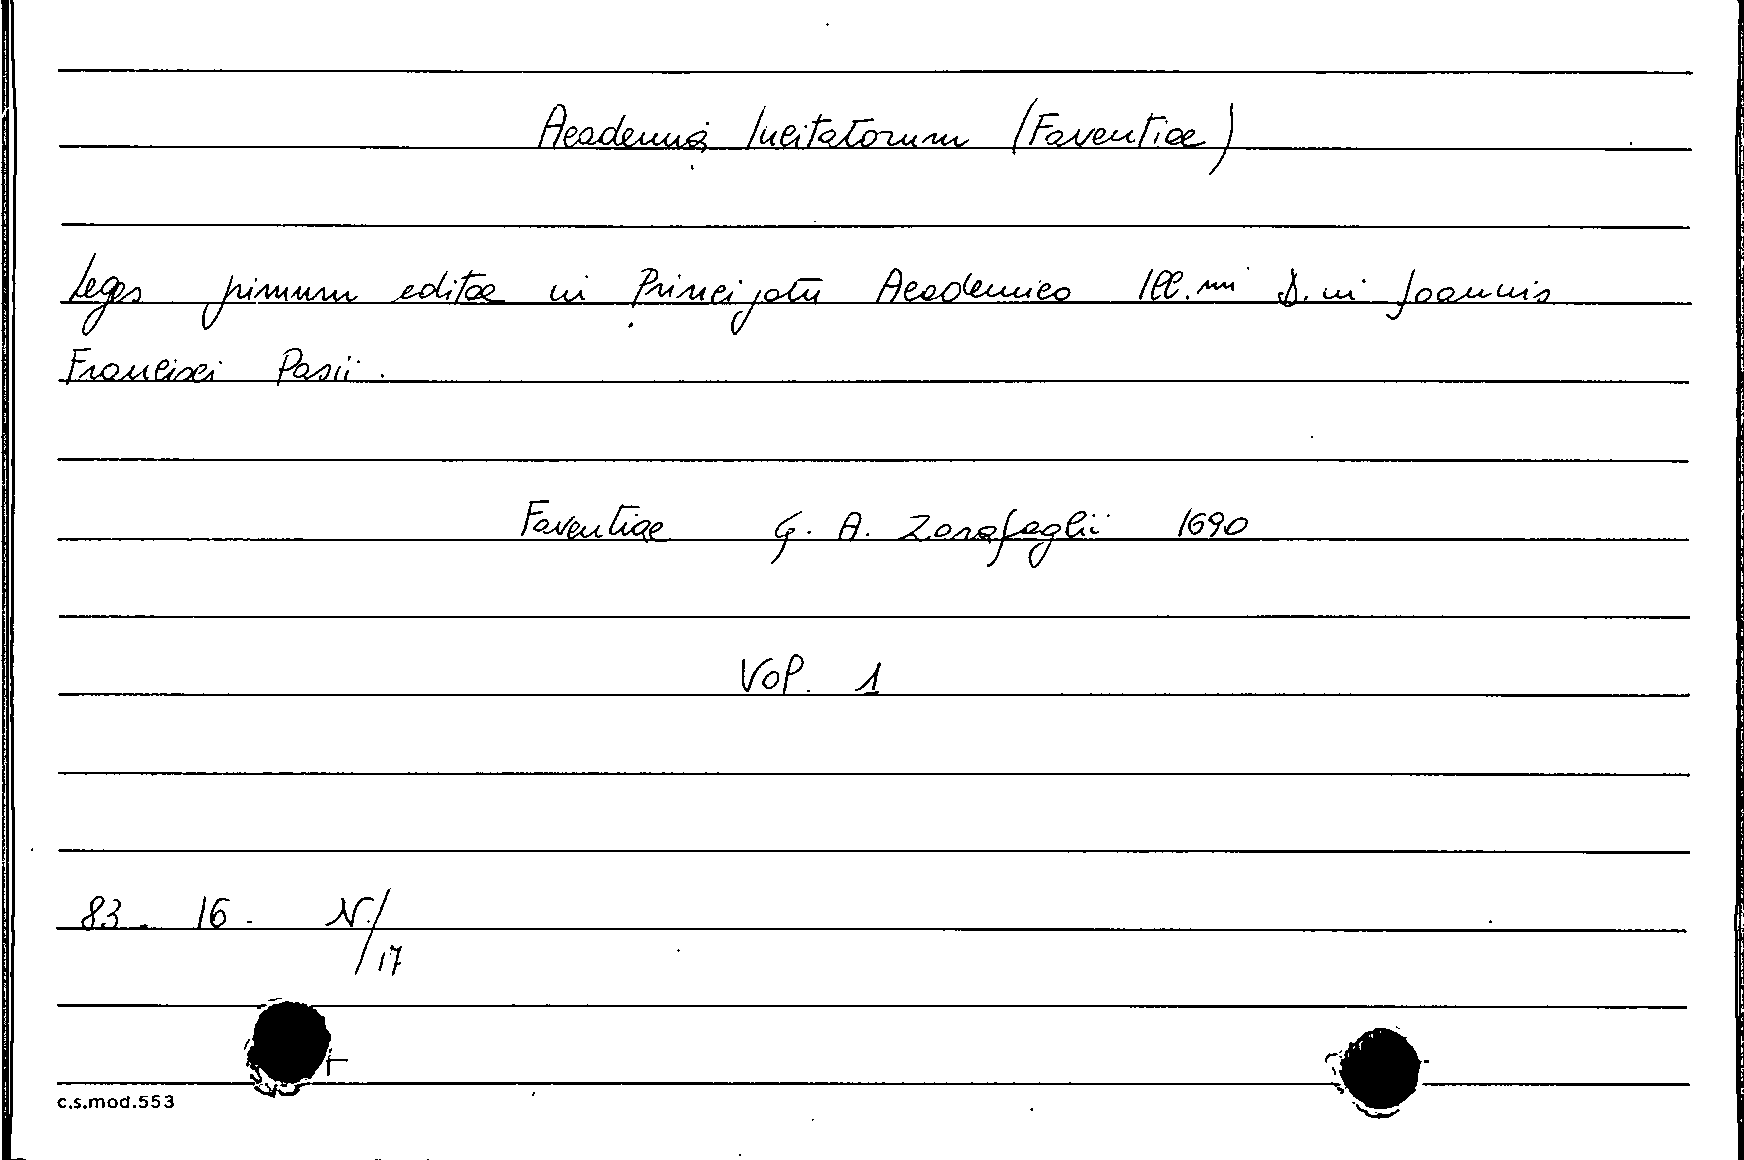 Academia Incitatorum (Faventiae)
Leges primum editae in Principatu Academico Ill.mi D.ni Joannis
Francisci Pasii.
Faventiae G. A. Zarafaglii 1690
Vol. 1
83. 16. N./17
c.s.mod.553